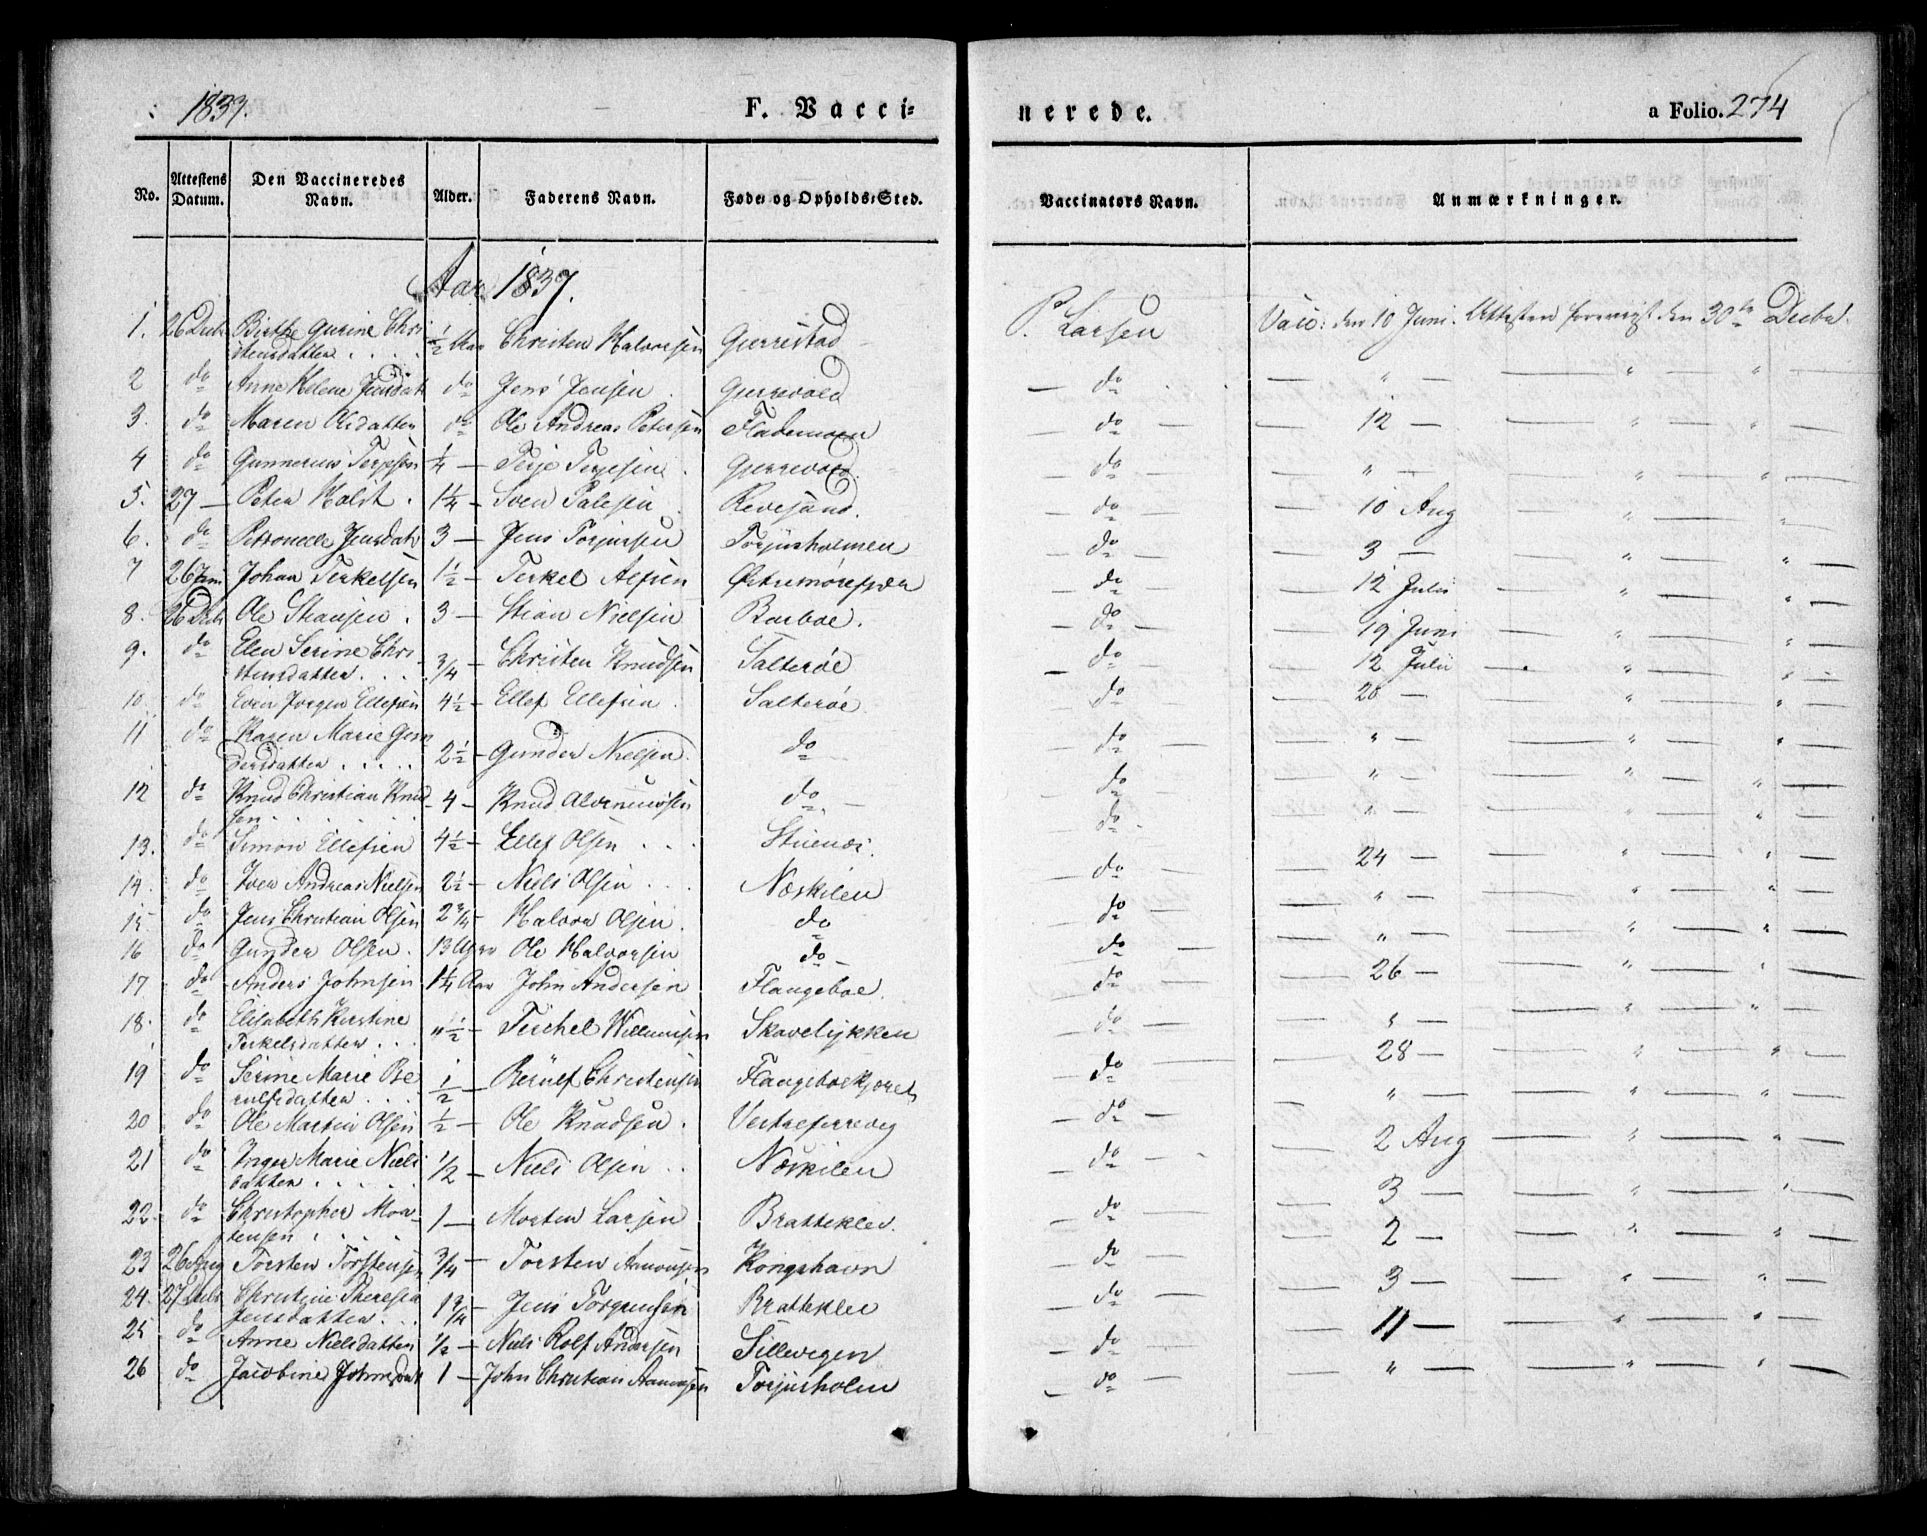 1837. F. Vacci= nerede. a Folio. 274
No. Attestens Datum. Den Vaccineredes Navn. Alder. Faderens Navn. Føde= og Opholds=Sted. Vaccinators Navn. Anmærkninger.
Aar 1837.
1. 26 Decbr Birthe Gurine Chri- ½ Aar Christen Halvorsen Gjerrestad P. Larsen Vacc: den 10 Juni. Attesten foreviist den 30te Decbr.
stensdatter . . . .
2 do Anne Helene Jensdatt do Jens Jensen Gjerrevold — do — " — — " — " —
3. do Maren Olsdatter do Ole Andreas Petersen Flademoen — do — 12 — — " — " —
4 do Gunnerius Terjesen ¼ — Terje Terjesen Gjerrevold — do — " — — " — " —
5. 27 — Peter Holst . 1¼ — Sven Salesen Revesand. — do — 10 Aug — " — " —
6. do Petronelle Jensdatt 3 — Jens Torjussen Torjusholmen — do — 3 — — " — " —
7 26 Juni Johan Terkelsen 1½ — Terkel — do — 12 Julii — " — " —
8. 26 Decb Ole Stiansen . 3 — Stian Nielsen Borboe. — do — 19 Juni — " — " —
9. do Elen Serine Chri- ¾ — Christen Knudsen Salterøe — do — 12 Julii — " — " —
stensdatter . . .
10. do Jørgen Ellefsen 4½ — Ellef Ellefsen . Salterøe — do — 20 — — " — " —
11 do Karen Marie Gun 2½ — Gunder Nielsen. do — do — " — — " — " —
dersdatter . . . .
12 do Knud Christian Knud- 4 — Knud do — do — " — — " — " —
sen . . . . . .
13. do Simon Ellefsen 4½ — Ellef Olsen . . . Stuenes. — do — 24 — — " — " —
14. do Iver Andreas Nielsen 2½ — Niels Olsen . . . Neskilen — do — " — — " — " —
15. do Jens Christian Olsen 2¾ — Halvor Olsen . do — do — " — — " — " —
16 do Gunder Olsen . 13 Uger Ole Halvorsen do — — do — 26 — — " — " —
17 do Anders Johnsen 1¼ Aar John Andersen Flangeboe. — do — " — — " — " —
18. do Elisabeth Kirstine " ½ — Terchel Willumsen Skovelykken — do — 28 — — " — " —
Terkelsdatter . . .
19 do Serine Marie Be ½ — Berulf Christensen — do — " — — " — " —
rulfsdatter . . . .
20 do Ole Martin Olsen ½ — Ole Knudsen . — do — 2 Aug — " — " —
21 do Inger Marie Niels ½ — Niels Olsen . . Neskilen — do — 3 — — " — " —
datter . . . . .
22 do Christopher Mor- 1 — Morten Larsen Bratteklev. — do — 2 — — " — " —
tensen . . . .
23 26 Aug Torsten Torstensen ¾ — Torsten Aamonsen Kongshavn — do — 3 — — " — " —
24. 27 Decb Christine Theresia 1¾ — Jens Torgensen Bratteklev — do — 11 — — " — " —
Jensdatter . . .
25 do Anne Nielsdatter ½ — Niels Rolf Andersen Sillevigen — do — " — — " — " —
26 do Jacobine Johnsdatt 1 — John Christian Aamonsen Torjusholm — do —